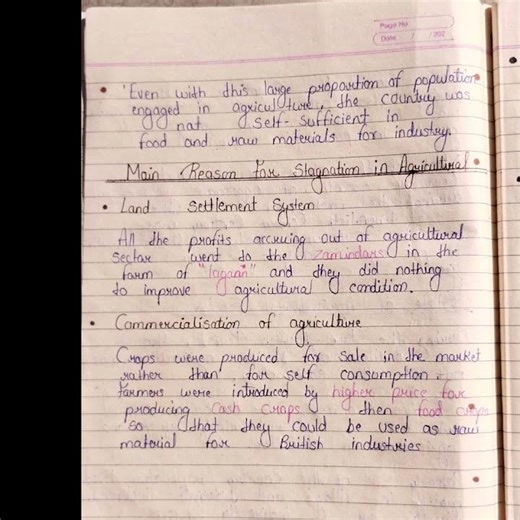 Page No
Date / / 202
• 'Even with this large proportion of population
engaged in agriculture, the country was
not self-sufficient in
food and raw materials for industry.
Main Reason for Stagnation in Agricultural
• Land Settlement System
All the profits accruing out of agricultural
sector went to the zamindars in the
form of "lagaan" and they did nothing
to improve agricultural condition.
• Commercialisation of agriculture
Crops were produced for sale in the market
rather than for self consumption.
Farmers were introduced by higher price for
producing cash crops then food crops
so that they could be used as raw
material for British industries